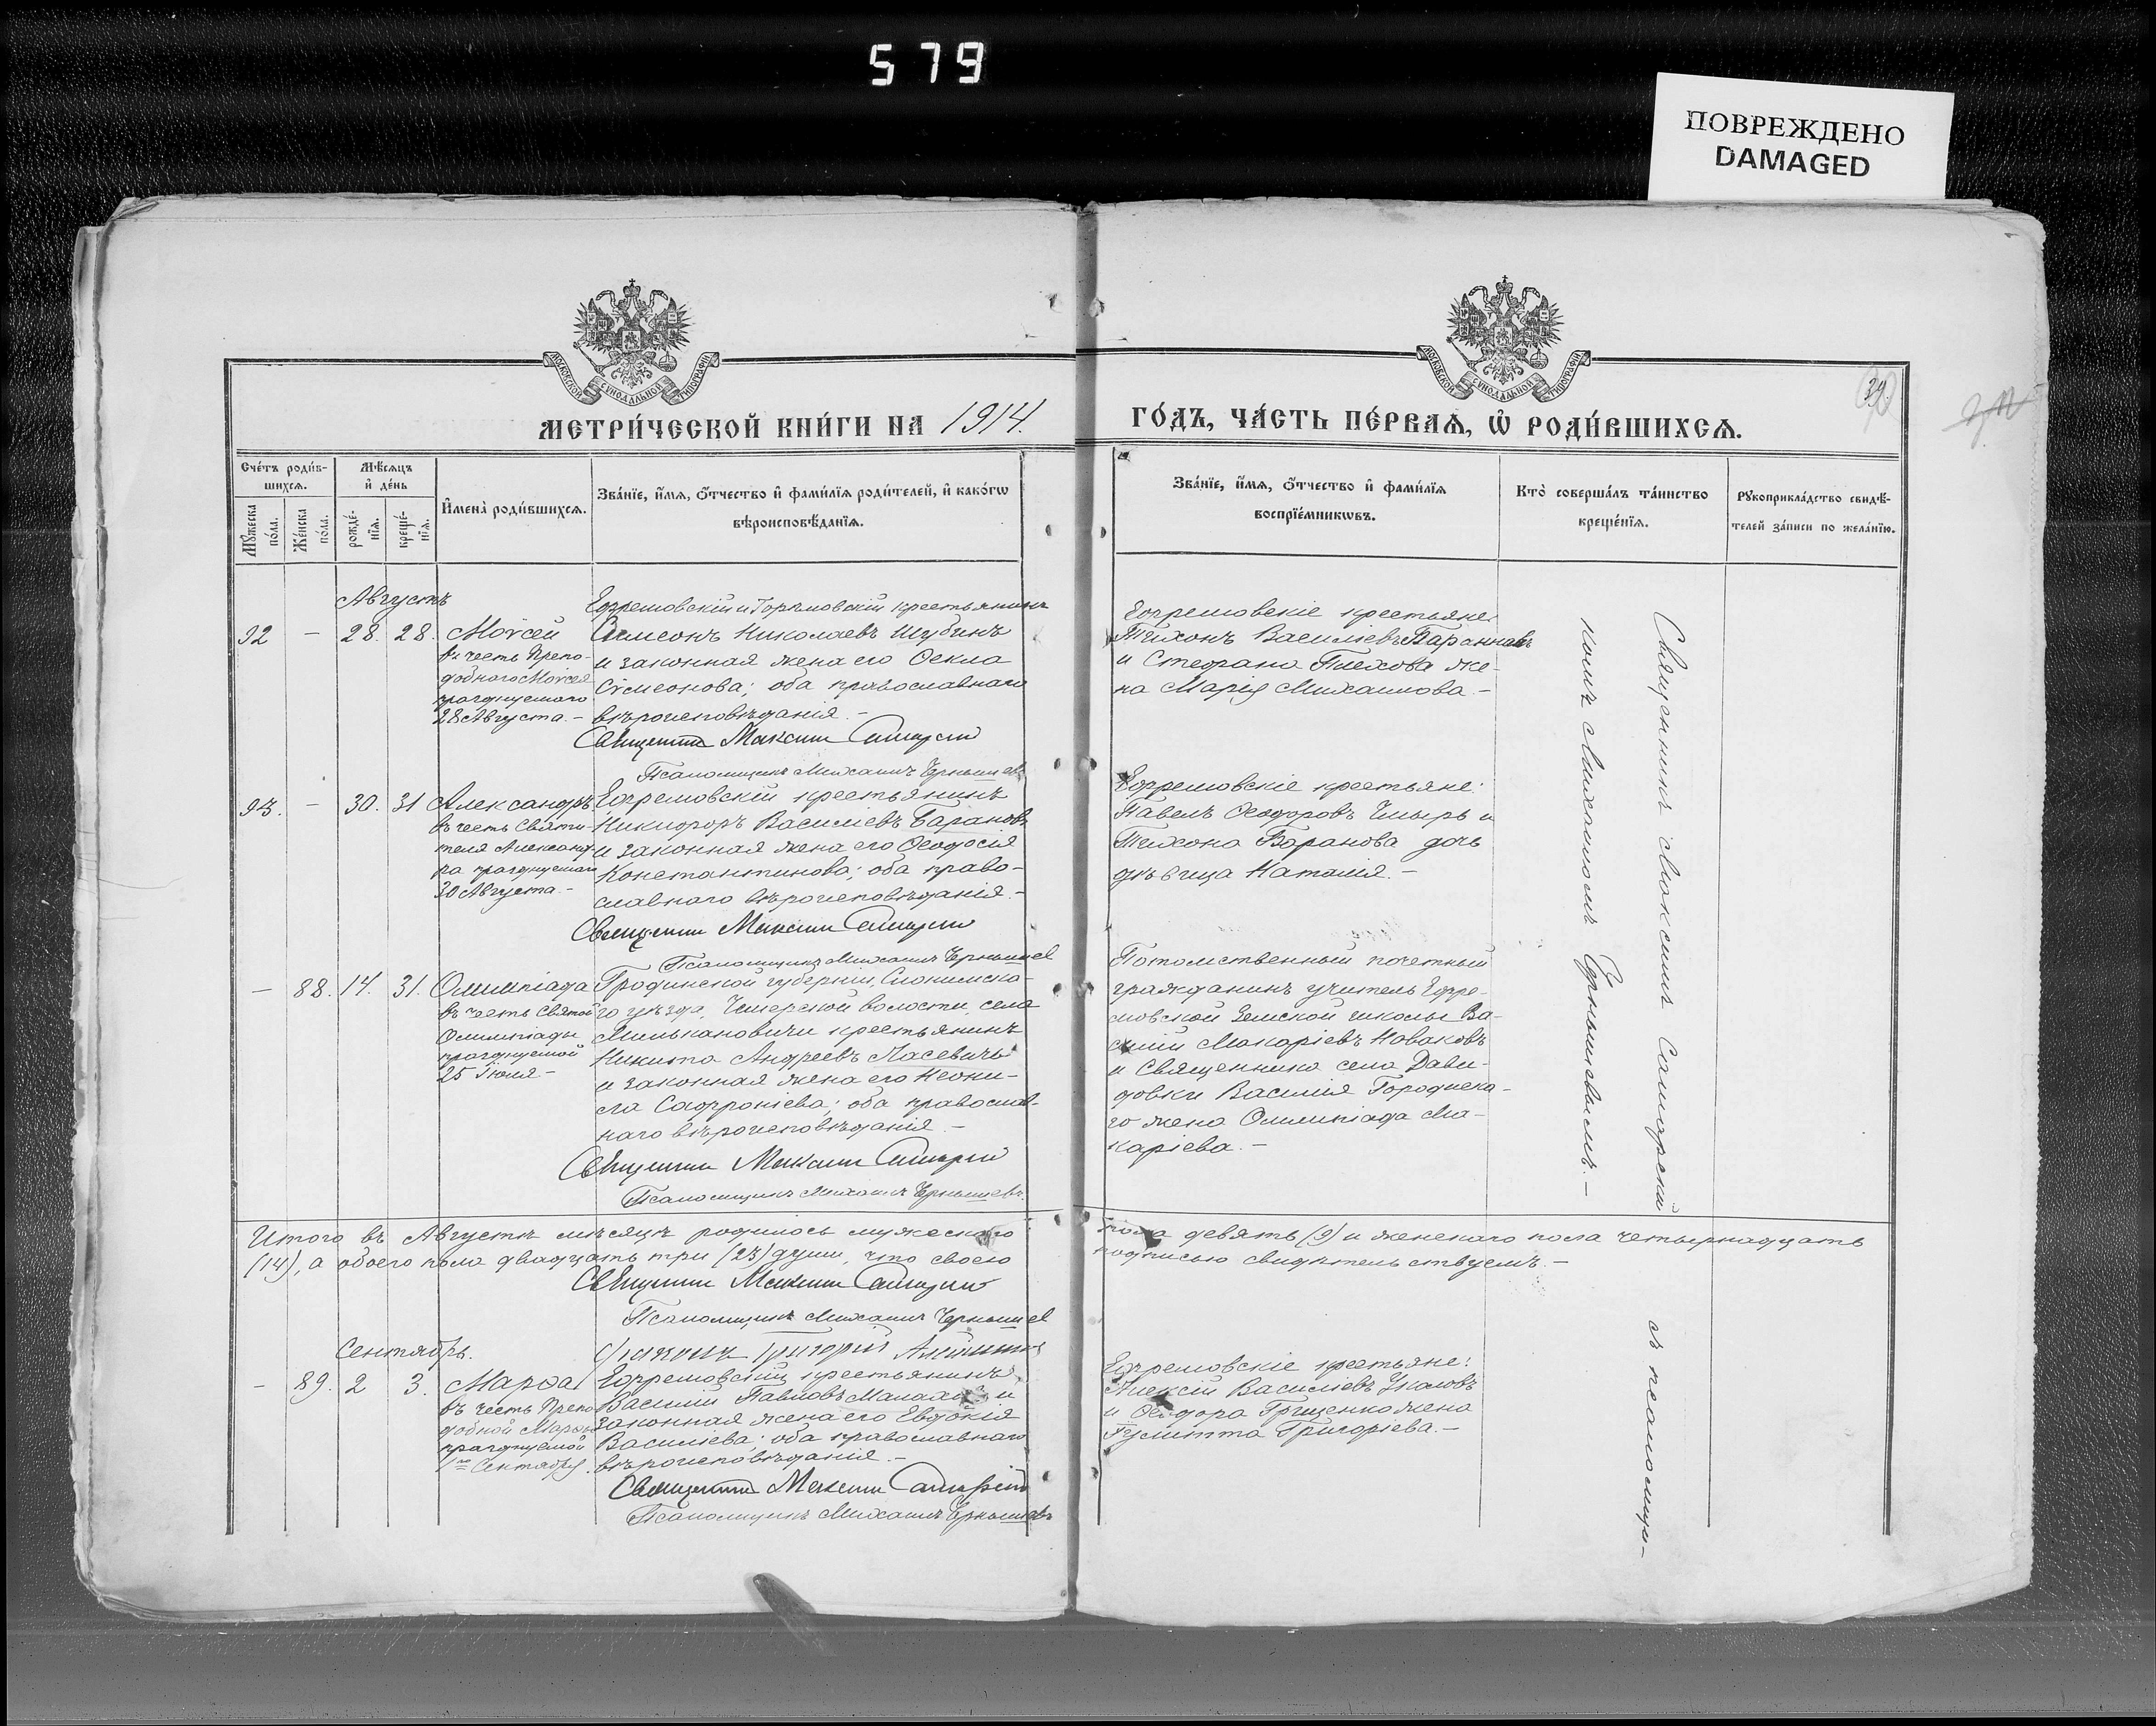 579
ПОВРЕЖДЕНО
DAMAGED
МОСКОВСКОЙ СѴНОДАЛЬНОЙ ТИПОГРАФІИ
МОСКОВСКОЙ СѴНОДАЛЬНОЙ ТИПОГРАФІИ
34.
МЕТРИ́ЧЕСКОЙ КНИ́ГИ НА 1914. ГО́ДЪ, ЧА́СТЬ ПЕ́РВАѦ, Ѡ҆ РОДИ́ВШИХСѦ.
Счё́тъ роди́в-
шихсѧ.
Мꙋ́жеска
по́ла.
Же́нска
по́ла.
Мѣ́сѧцъ
и҆ де́нь
рожде́-
нїѧ.
креще́-
нїѧ.
И҆мена̀ роди́вшихсѧ.
Зва́нїе, и҆́мѧ, ѻ҆́тчество и҆ фами́лїѧ роди́телей, и҆ како́гѡ
вѣроисповѣ́данїѧ.
Зва́нїе, и҆́мѧ, ѻ҆́тчество и҆ фами́лїѧ
воспрїе́мникѡвъ.
Кто̀ соверша́лъ та́инство
креще́нїѧ.
Рꙋкоприкла́дство свидѣ́-
телей за́писи по жела́нїю.
Августъ
92 - 28. 28. Моѵсей
въ честь Препо-
добнаго Моѵсея
празднуемаго
28 Августа. -
Ефремовскій и крестьянинъ
Сѵмеонъ Николаевъ Шубинъ
и законная жена его Ѳекла
Сѵмеонова; оба православнаго
вѣроисповѣданія. -
Священникъ Максимъ Самарскій
Псаломщикъ Михаилъ Чернышевъ
Ефремовскіе крестьяне:
Тихонъ Васильевъ
и Стефана жe-
на Марія Михаилова. -
93. - 30. 31 Александръ
въ честь Святи-
теля Александ-
ра празднуемаго
30 Августа. -
Ефремовскій крестьянинъ
Никифоръ Василіевъ Барановъ
и законная жена его Ѳеодосія
Константинова; оба право-
славнаго вѣроисповѣданія. -
Священникъ Максимъ Самарскій
Псаломщикъ Михаилъ Чернышев
Ефремовскіе крестьяне:
Павелъ Ѳеодоровъ и
Тихона Баранова дочь
дѣвица Наталія. -
- 88. 14. 31. Олимпіада
въ честь Святой
Олимпіады
празднуемой
25 Іюля -
Гродненской губерніи, Слонимска-
го уѣзда, Чемерской волости, села
Милькановичи крестьянинъ
Никита Андреевъ Ласевичъ
и законная жена его Неони-
ла Софроніева; оба православ-
наго вѣроисповѣданія. -
Священникъ Максимъ Самарскій
Псаломщикъ Михаилъ Чернышевъ.
Потомственный почетный
гражданинъ учитель Ефре-
мовской Земской школы Ва-
силій Макаріевъ Новаковъ
и Священника села Дави-
довки Василія Городиска-
го жена Олимпіада Ма-
каріева. -
Итого въ Августѣ мѣсяцѣ родилось мужескаго пола девять (9) и женскаго пола четырнадцать
(14), а обоего пола двадцать три (23) души, что своею подписью свидѣтельствуемъ. -
Священникъ Максимъ Самарскій
Псаломщикъ Михаилъ Чернышев
Сентябрь.
Діаконъ Григорій
- 89. 2 3. Марѳа
въ честь Препо-
добной Марѳы
празднуемой
1го Сентября.
Ефремовскій крестьянинъ
Василій Павловъ и
законная жена его Евдокія
Василіева; оба православнаго
вѣроисповѣданія. -
Священникъ Максимъ Самарскій
Псаломщикъ Михаилъ Чернышевъ
Ефремовскіе крестьяне:
Алексій Василіевъ Укаловъ
и Ѳеодора Грищенко жена
Іулитта Григоріева. -
Священникъ Максимъ Самарскій съ псаломщи-
комъ Михаиломъ Чернышевымъ. -